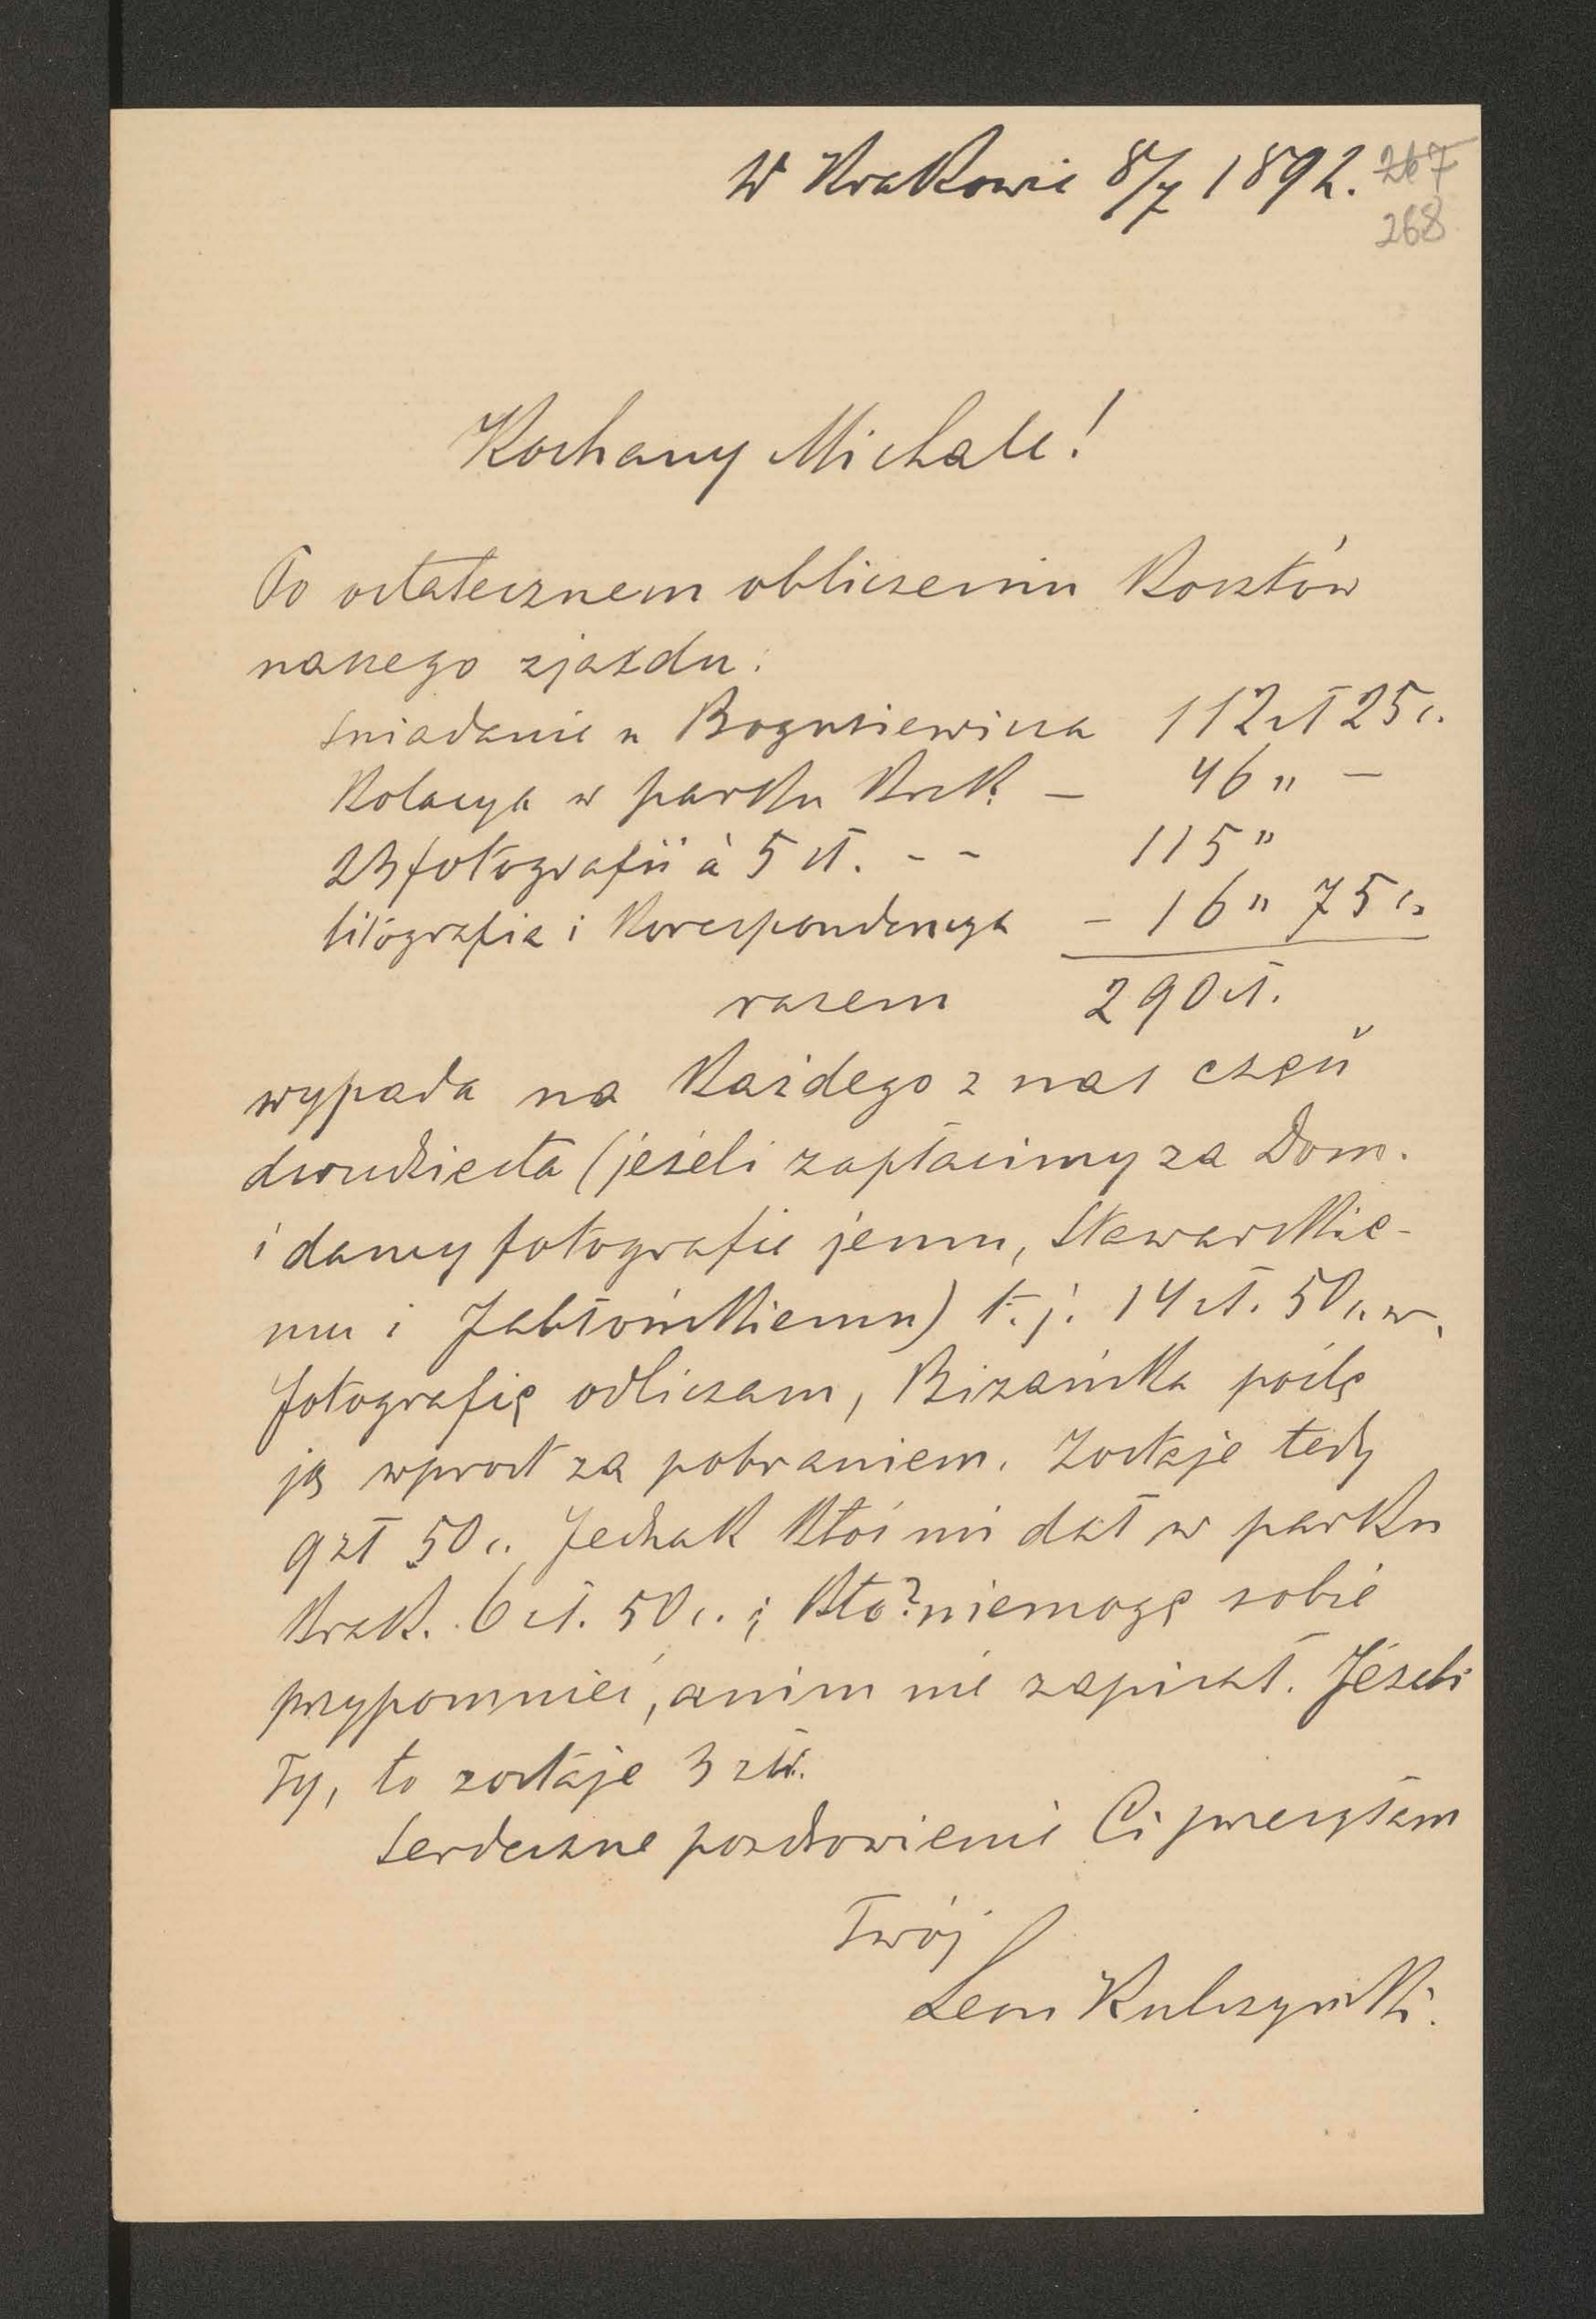 W Krakowie 8/7 1892. 267
268
Kochany Michale!
Po ostatecznem obliczeniu Kosztów
naszego zjazdu:
Śniadanie u Bogusiewicza 112 zł 25 c.
Kolacya w parku Krak. — 46 " —
23 fotografii à 5 zł. - - 115 "
litografia i Korespondencya - 16 " 75 c.
razem 290 zł.
wypada na Każdego z nas część
dwudziesta (jeżeli zapłacimy za Dom.
i damy fotografie jemu, Stawarskie-
mu i Jabłońskiemu) t. j. 14 zł. 50 c. w.
fotografię odliczam, Bizańska poślę
ją wprost za pobraniem. Zostaje tedy
9 zł 50 c. Jednak Ktoś mi dał w parku
Krak. 6 zł. 50 c. ; Kto? niemogę sobie
przypomnieć, anim nie zapisał. Jeżeli
Ty, to zostaje 3 zł.
Serdeczne pozdrowienie Ci przesyłam
Twój
Leon Kulczyński.